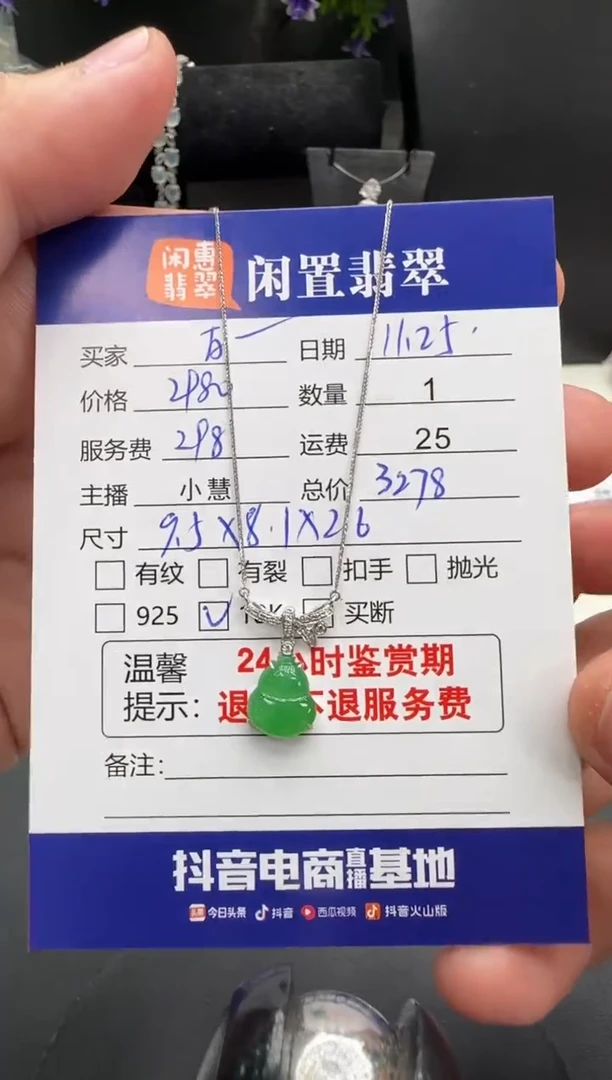 闲惠
翡翠
闲置翡翠
买家 日期 11.25.
价格 2980 数量 1
服务费 298 运费 25
主播 小慧 总价 3278
尺寸 9.5X8.1X2.6
有纹 有裂 扣手 抛光
925 买断
温馨 24小时鉴赏期
提示：退 不退服务费
备注：
抖音电商直播基地
头条 今日头条 抖音 西瓜视频 抖音火山版